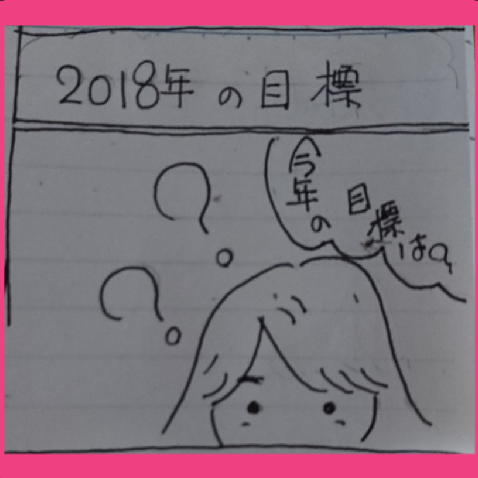 2018年の目標
今年の
目標は?
?
?